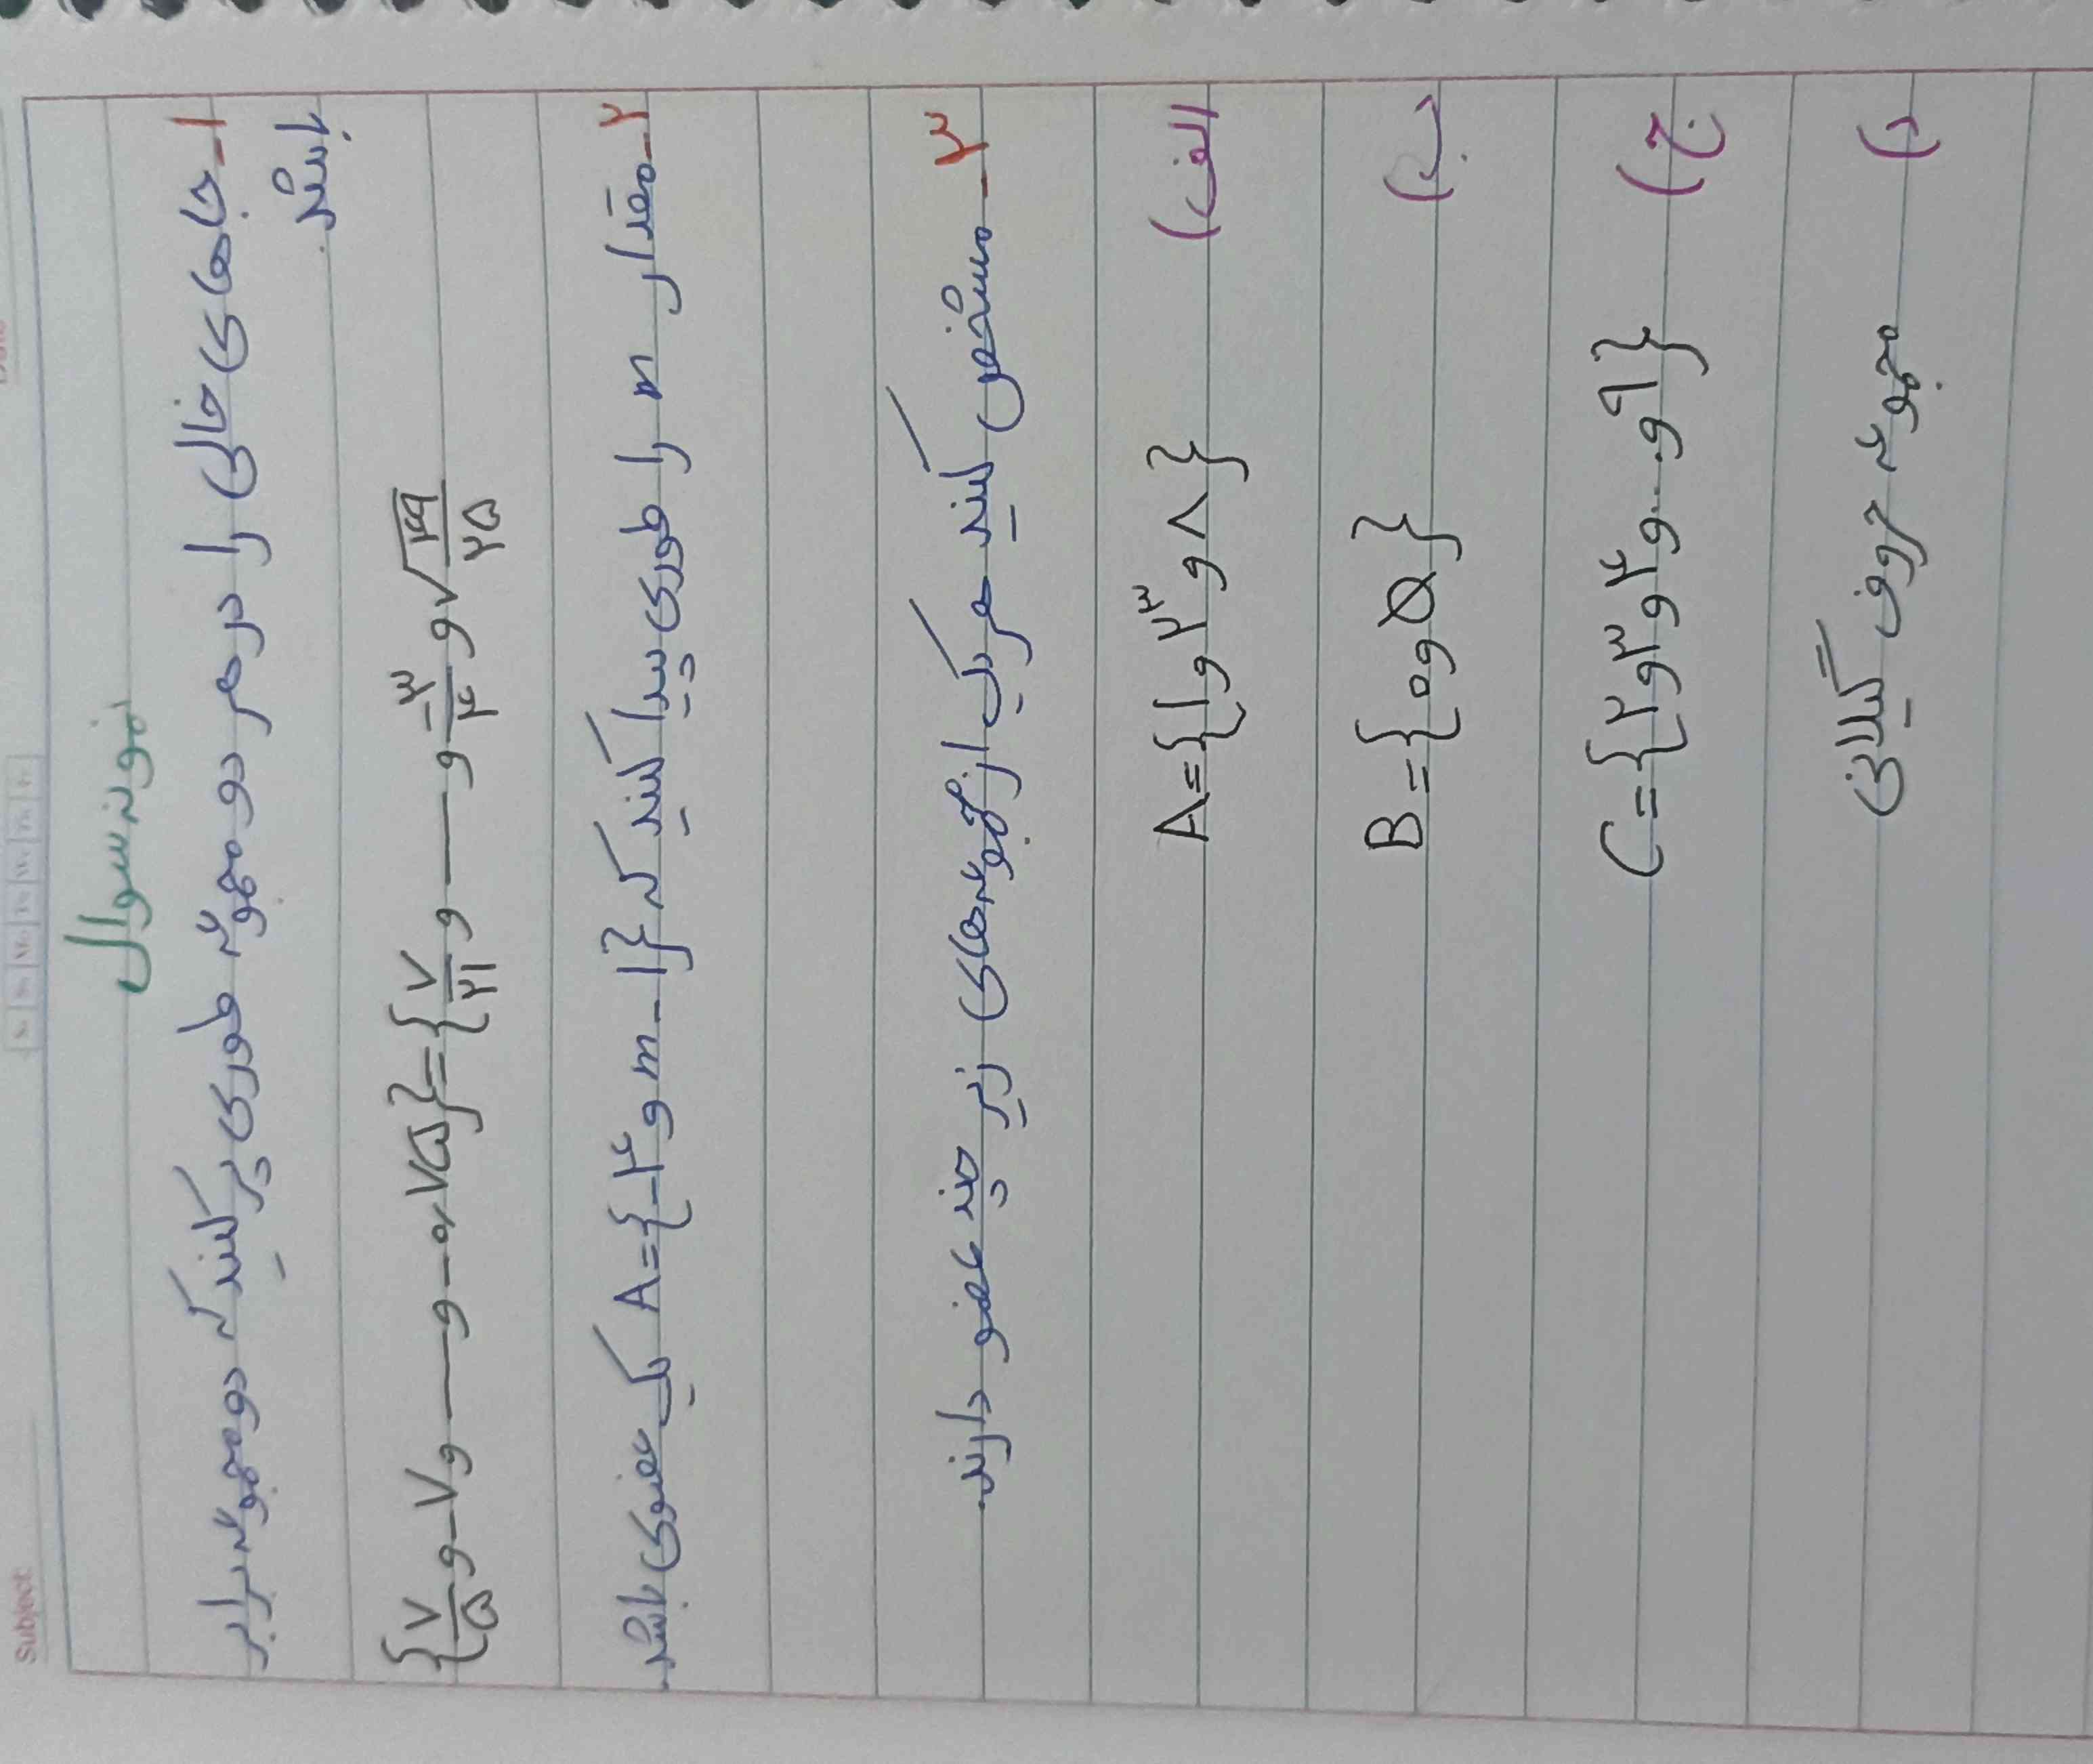 Subject:
نمونه سوال
۱- جاهای خالی را در هر دو مجموعه طوری پر کنید که دو مجموعه برابر
باشند.
{۷/۵ و -۷ و —— و -۰/۷۵} = {۷/۲۱ و —— و -۳/۴ و √۴۹/۲۵}
۲- مقدار m را طوری پیدا کنید که A={-۴ و m-۱} یک عضوی باشد.
۳- مشخص کنید هر یک از مجموعه‌های زیر چند عضو دارند.
الف) A={۱ و ۲³ و ۸}
ب) B={۰ و Ø}
ج) C={۲ و ۳ و ۴ و ... و ۹}
د) مجموعه حروف گیلان